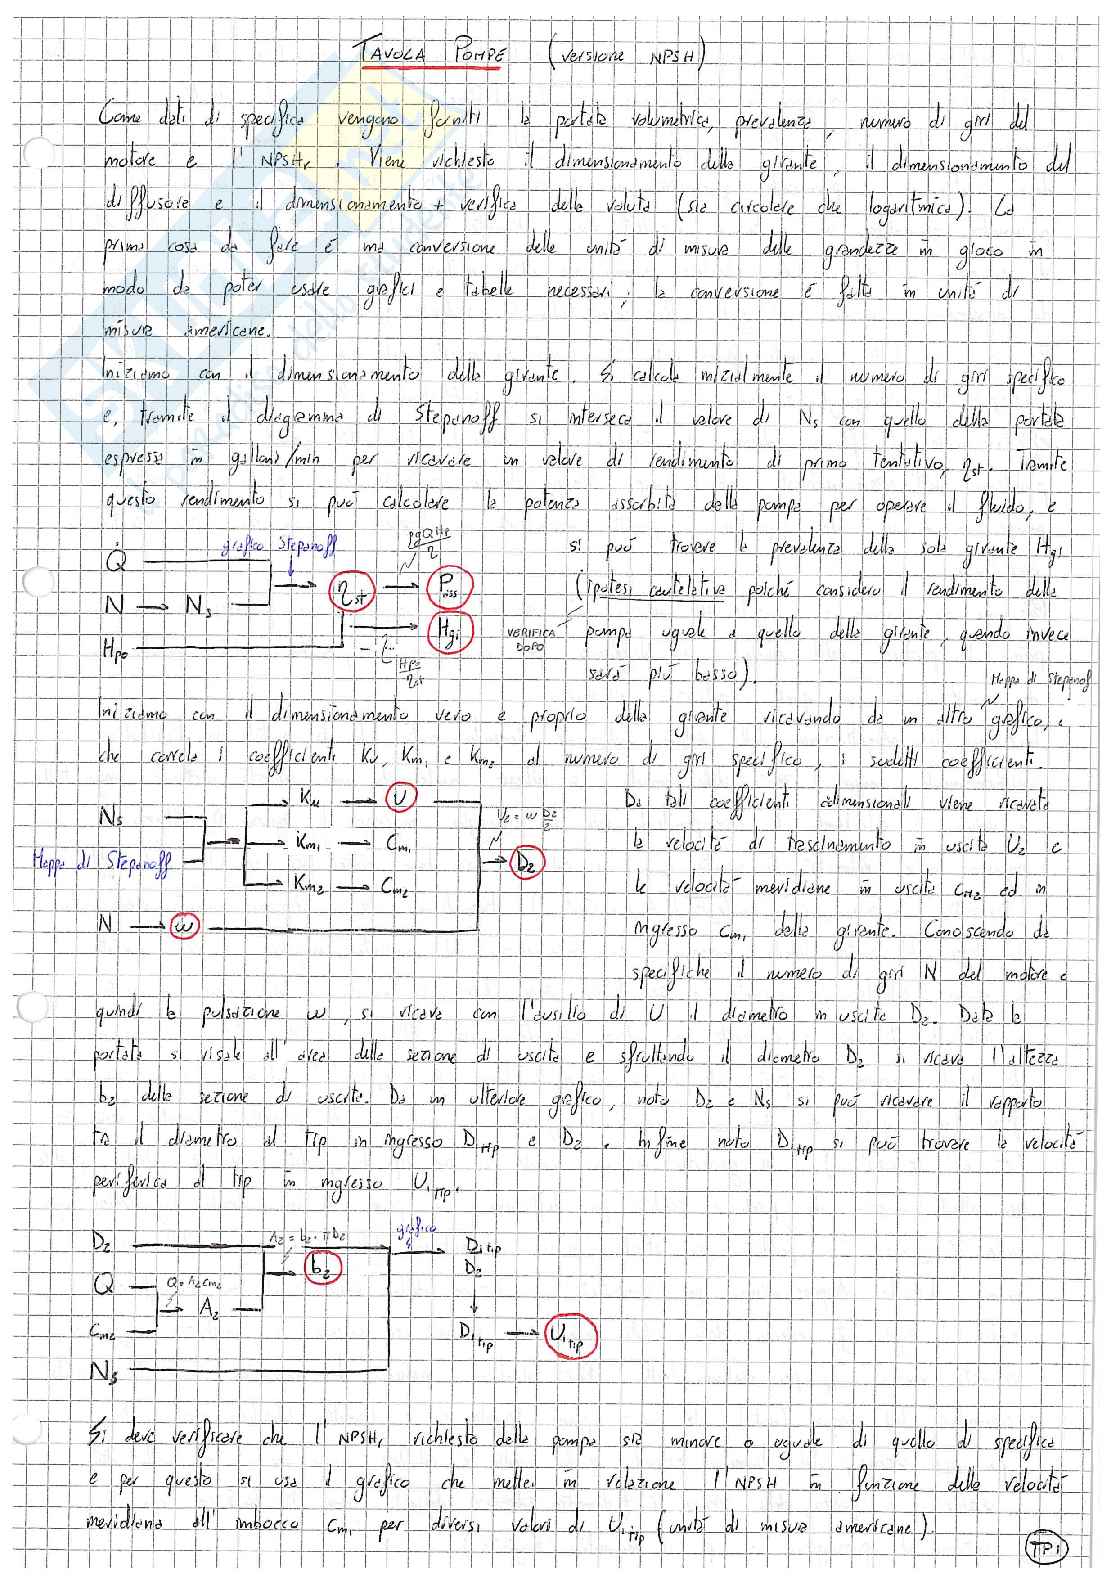 TAVOLA POMPE (versione NPSH)
Come dati di specifica vengono forniti la portata volumetrica, prevalenza, numero di giri del
motore e l'NPSHr. Viene richiesto il dimensionamento della girante, il dimensionamento del
diffusore e il dimensionamento + verifica della voluta (sia circolare che logaritmica). La
prima cosa da fare è una conversione delle unità di misura delle grandezze in gioco in
modo da poter usare grafici e tabelle necessari; la conversione è fatta in unità di
misura americane.
Iniziamo con il dimensionamento della girante. Si calcola inizialmente il numero di giri specifico
e, tramite il diagramma di Stepanoff si interseca il valore di Ns con quello della portata
espressa in galloni/min per ricavare un valore di rendimento di primo tentativo, ηst. Tramite
questo rendimento si può calcolare la potenza assorbita della pompa per operare il fluido, e
grafico Stepanoff
ρgQHp/η
si può trovare la prevalenza della sola girante Hgi
Q̇
N → Ns → ηst → Pass
(ipotesi cautelativa poiché considero il rendimento della
Hgi
VERIFICA DOPO
pompa uguale a quello della girante, quando invece
Hpo
Hpo/ηst
sarà più basso).
Mappa di Stepanoff
Iniziamo con il dimensionamento vero e proprio della girante ricavando da un altro grafico,
che correla i coefficienti Ku, Km1 e Km2 al numero di giri specifico, i suddetti coefficienti.
Ku → U
U2 = ω D2/2
Da tali coefficienti adimensionali viene ricavata
Ns
Km1 → Cm1
la velocità di trascinamento in uscita U2 e
Mappa di Stepanoff
D2
Km2 → Cm2
le velocità meridiane in uscita Cm2 ed in
N → ω
ingresso Cm1 della girante. Conoscendo da
specifiche il numero di giri N del motore e
quindi la pulsazione ω, si ricava con l'ausilio di U il diametro in uscita D2. Data la
portata si risale all'area della sezione di uscita e sfruttando il diametro D2 si ricava l'altezza
b2 della sezione di uscita. Da un ulteriore grafico, noto D2 e Ns si può ricavare il rapporto
tra il diametro al tip in ingresso D1tip e D2. Infine noto D1tip si può trovare la velocità
periferica al tip in ingresso U1tip.
D2
A2 = b2 · πD2
grafico
D1tip/D2
b2
Q
Q=A2cm2
A2
Cm2
D1tip → U1tip
Ns
Si deve verificare che l'NPSHr richiesto della pompa sia minore o uguale di quello di specifica
e per questo si usa il grafico che mette in relazione l'NPSH in funzione della velocità
meridiana all'imbocco Cm1 per diversi valori di U1tip (unità di misura americane).
TP1